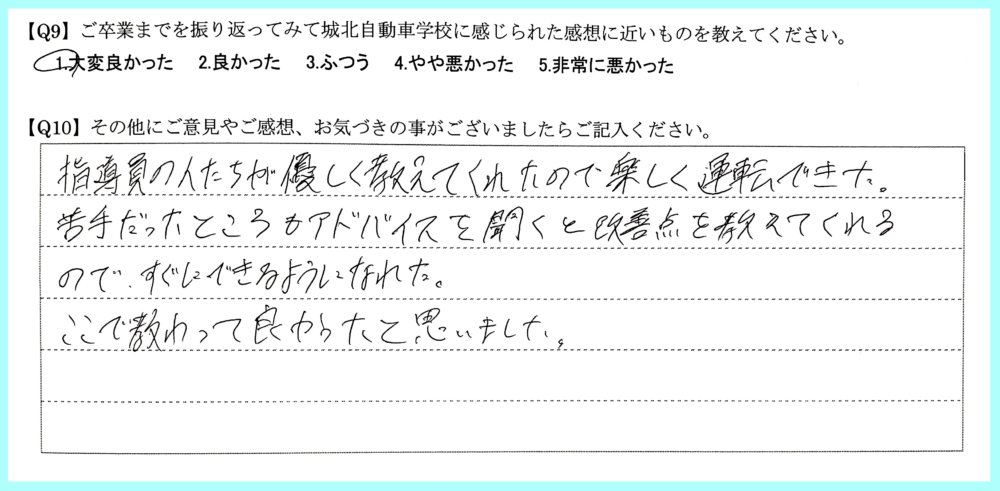 【Q9】ご卒業までを振り返ってみて城北自動車学校に感じられた感想に近いものを教えてください。
1.大変良かった 2.良かった 3.ふつう 4.やや悪かった 5.非常に悪かった
【Q10】その他にご意見やご感想、お気づきの事がございましたらご記入ください。
指導員の人たちが優しく教えてくれたので楽しく運転できた。
苦手だったところもアドバイスを聞くと改善点を教えてくれる
ので、すぐにできるようになれた。
ここで教わって良かったと思いました。